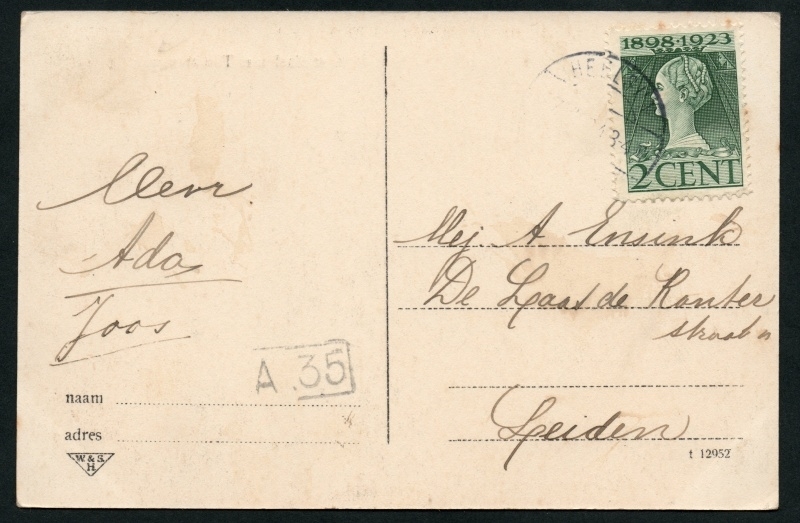 1898-1923
2 CENT
Mevr
Ada
Joos
A.35
naam
adres
W. & S.
H.
Mej. A Ensink
De Laat de Kanter
straat
Leiden
t 12952